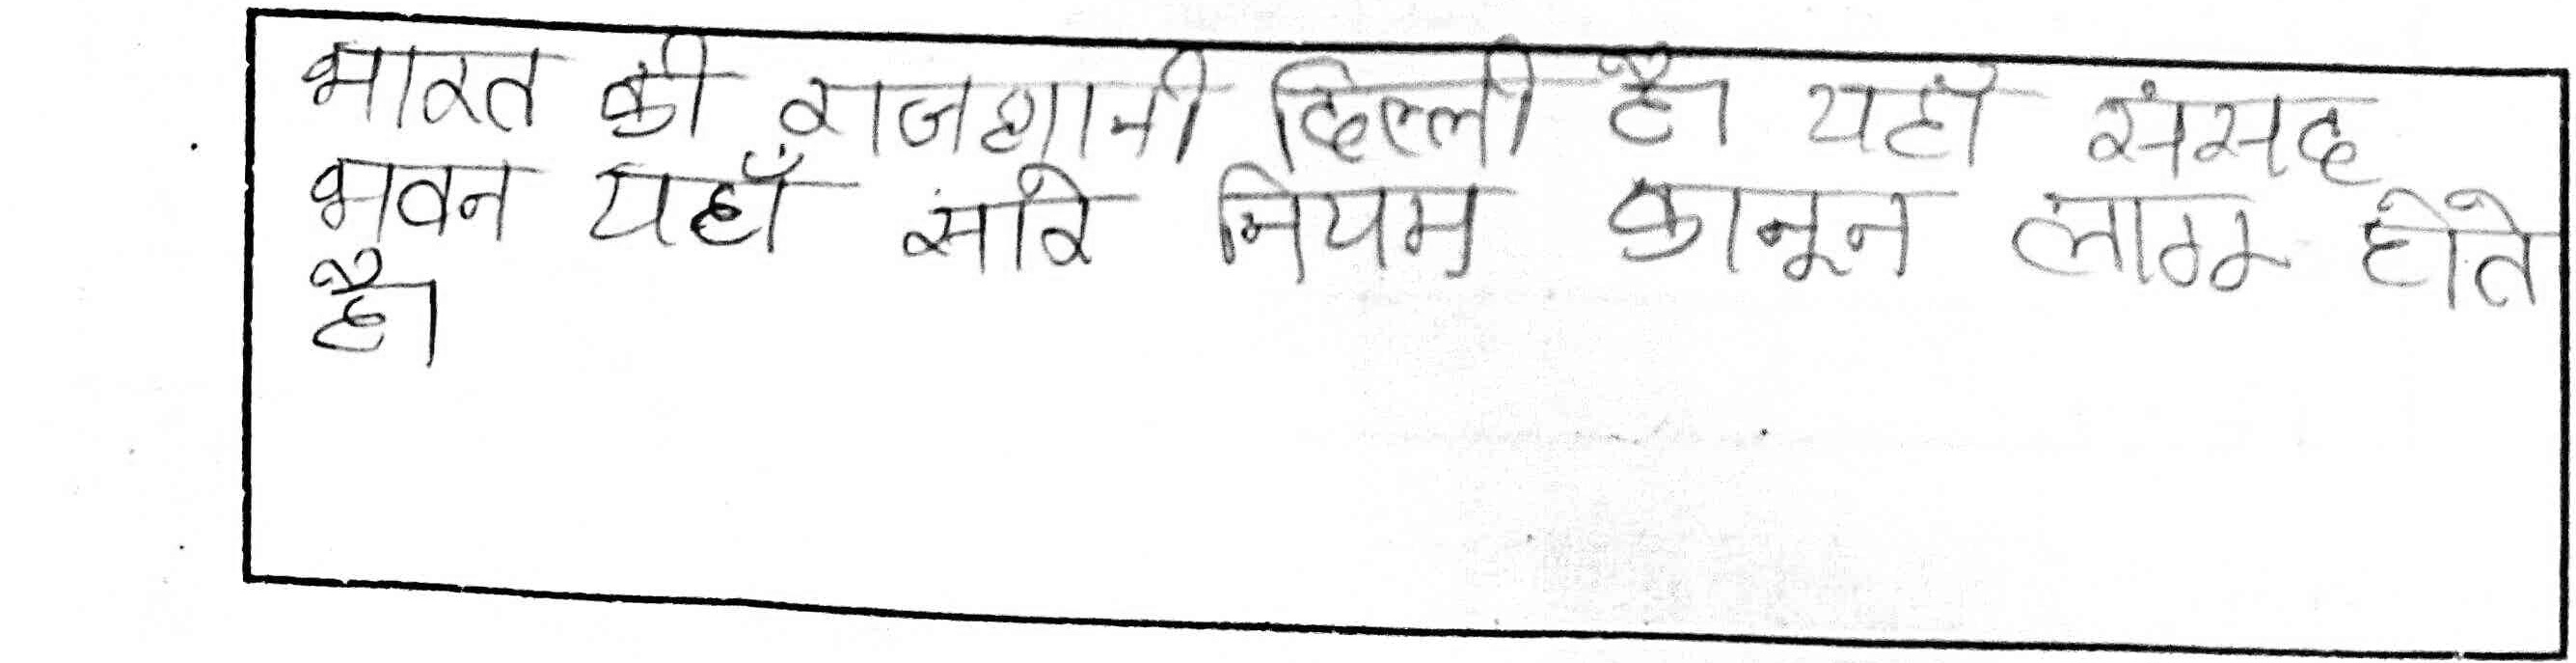 भारत की राजधानी दिल्ली है। यहाँ संसद
भवन यहाँ सारे नियम कानून लागू होते
है।